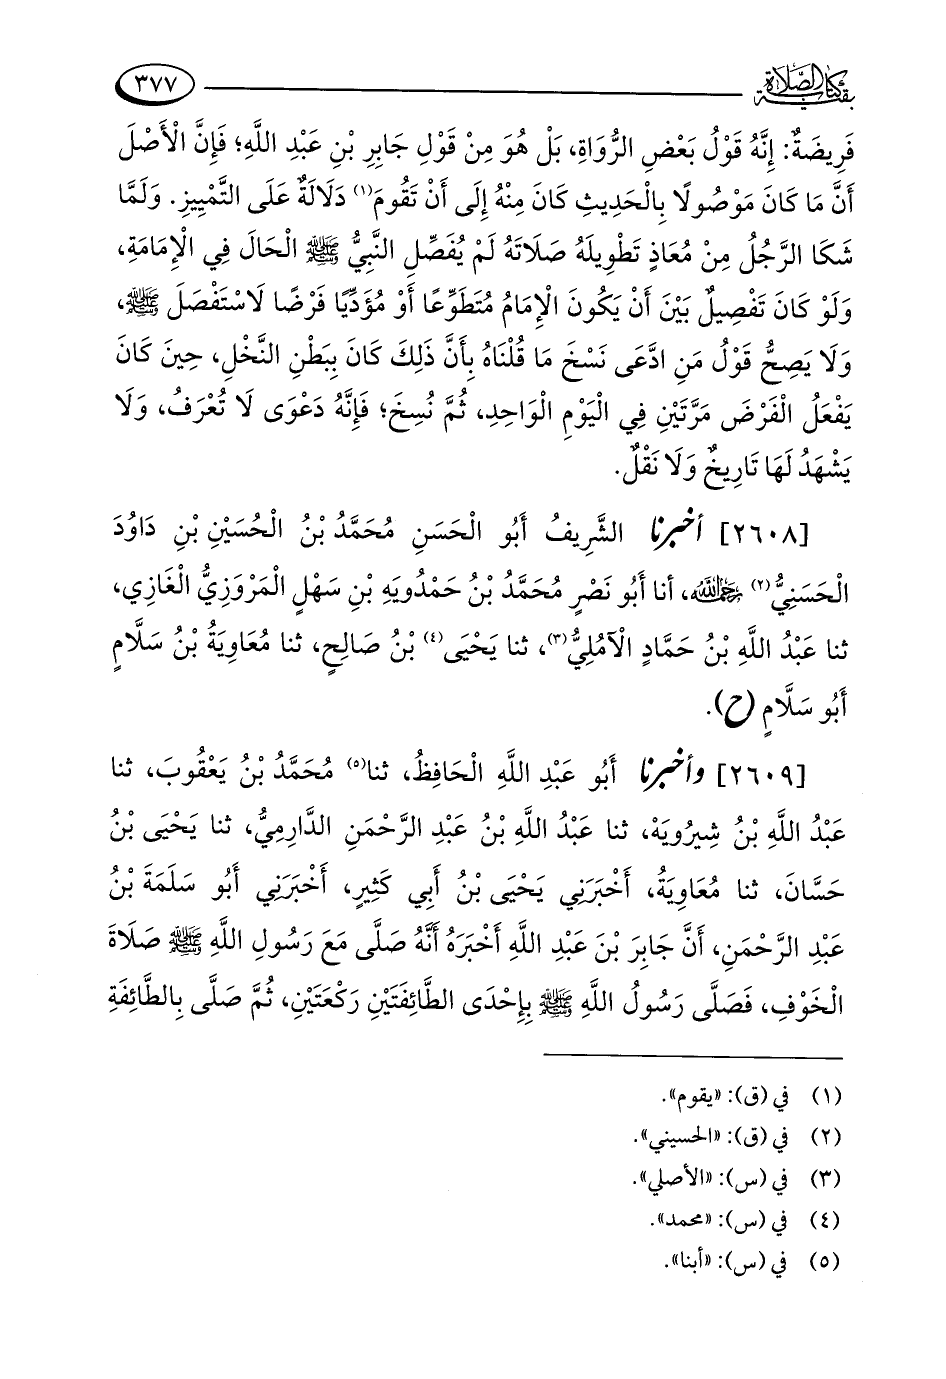 بقية كتاب الصلاة ٣٧٧
فَرِيضَةٌ: إِنَّهُ قَوْلُ بَعْضِ الرُّوَاةِ، بَلْ هُوَ مِنْ قَوْلِ جَابِرِ بْنِ عَبْدِ اللَّهِ؛ فَإِنَّ الْأَصْلَ
أَنَّ مَا كَانَ مَوْصُولًا بِالْحَدِيثِ كَانَ مِنْهُ إِلَى أَنْ تَقُومَ(١) دَلَالَةٌ عَلَى التَّمْيِيزِ. وَلَمَّا
شَكَا الرَّجُلُ مِنْ مُعَاذٍ تَطْوِيلَهُ صَلَاتَهُ لَمْ يُفَصِّلِ النَّبِيُّ ﷺ الْحَالَ فِي الْإِمَامَةِ،
وَلَوْ كَانَ تَفْصِيلٌ بَيْنَ أَنْ يَكُونَ الْإِمَامُ مُتَطَوِّعًا أَوْ مُؤَدِّيًا فَرْضًا لَاسْتَفْصَلَ ﷺ،
وَلَا يَصِحُّ قَوْلُ مَنِ ادَّعَى نَسْخَ مَا قُلْنَاهُ بِأَنَّ ذَلِكَ كَانَ بِبَطْنِ النَّخْلِ، حِينَ كَانَ
يَفْعَلُ الْفَرْضَ مَرَّتَيْنِ فِي الْيَوْمِ الْوَاحِدِ، ثُمَّ نُسِخَ؛ فَإِنَّهُ دَعْوَى لَا تُعْرَفُ، وَلَا
يَشْهَدُ لَهَا تَارِيخٌ وَلَا نَقْلٌ.
[٢٦٠٨] أخبرنا الشَّرِيفُ أَبُو الْحَسَنِ مُحَمَّدُ بْنُ الْحُسَيْنِ بْنِ دَاوُدَ
الْحَسَنِيُّ(٢) رحمه الله، أنا أَبُو نَصْرٍ مُحَمَّدُ بْنُ حَمْدُويَهِ بْنِ سَهْلٍ الْمَرْوَزِيُّ الْغَازِي،
ثنا عَبْدُ اللَّهِ بْنُ حَمَّادٍ الْآمُلِيُّ(٣)، ثنا يَحْيَى(٤) بْنُ صَالِحٍ، ثنا مُعَاوِيَةُ بْنُ سَلَّامٍ
أَبُو سَلَّامٍ (ح).
[٢٦٠٩] وأخبرنا أَبُو عَبْدِ اللَّهِ الْحَافِظُ، ثنا(٥) مُحَمَّدُ بْنُ يَعْقُوبَ، ثنا
عَبْدُ اللَّهِ بْنُ شِيرُويَهْ، ثنا عَبْدُ اللَّهِ بْنُ عَبْدِ الرَّحْمَنِ الدَّارِمِيُّ، ثنا يَحْيَى بْنُ
حَسَّانَ، ثنا مُعَاوِيَةُ، أَخْبَرَنِي يَحْيَى بْنُ أَبِي كَثِيرٍ، أَخْبَرَنِي أَبُو سَلَمَةَ بْنُ
عَبْدِ الرَّحْمَنِ، أَنَّ جَابِرَ بْنَ عَبْدِ اللَّهِ أَخْبَرَهُ أَنَّهُ صَلَّى مَعَ رَسُولِ اللَّهِ ﷺ صَلَاةَ
الْخَوْفِ، فَصَلَّى رَسُولُ اللَّهِ ﷺ بِإِحْدَى الطَّائِفَتَيْنِ رَكْعَتَيْنِ، ثُمَّ صَلَّى بِالطَّائِفَةِ
(١) في (ق): «يقوم».
(٢) في (ق): «الحسيني».
(٣) في (س): «الأصلي».
(٤) في (س): «محمد».
(٥) في (س): «أبنا».